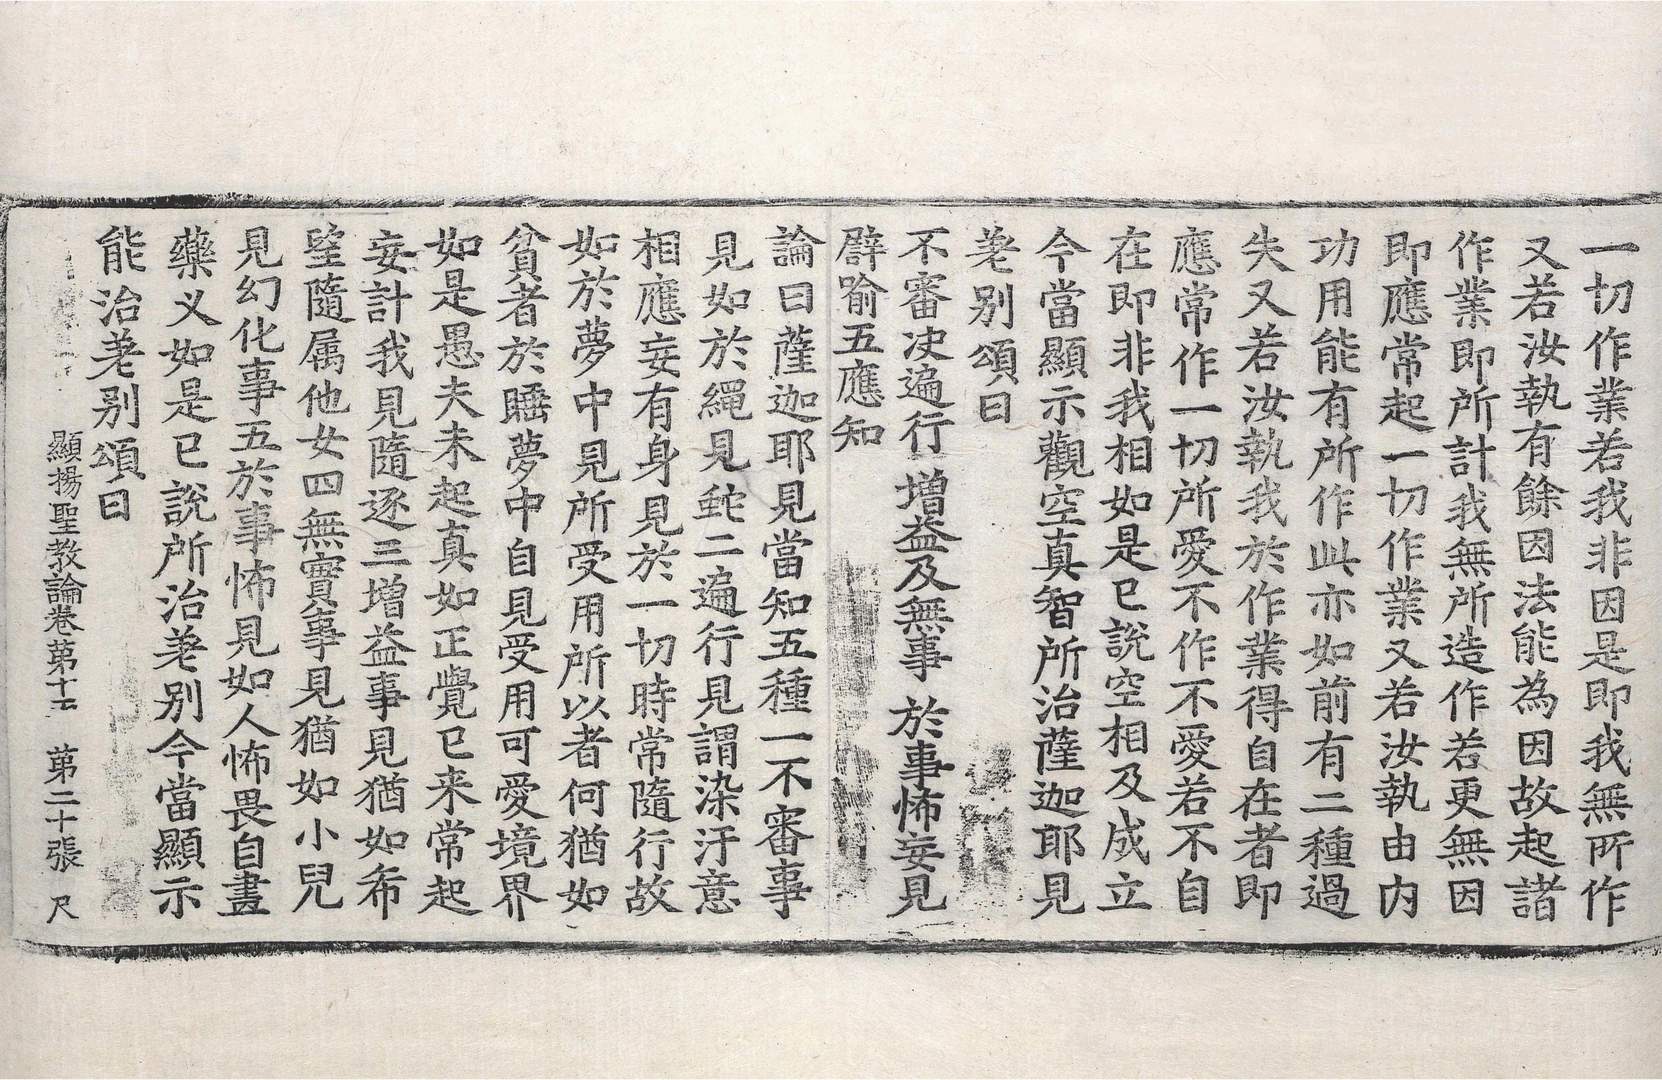 一切作業若我非因是即我無所作
又若汝執有餘因法能為因故起諸
作業即所計我無所造作若更無因
即應常起一切作業又若汝執由内
功用能有所作此亦如前有二種過
失又若汝執我於作業得自在者即
應常作一切所愛不作不愛若不自
在即非我相如是已說空相及成立
今當顯示觀空真智所治薩迦耶見
差别頌曰
不審决遍行　增益及無事　於事怖妄見
譬喻五應知
論曰薩迦耶見當知五種一不審事
見如於繩見虵二遍行見謂染汙意
相應妄有身見於一切時常隨行故
如於夢中見所受用所以者何猶如
貧者於睡夢中自見受用可愛境界
如是愚夫未起真如正覺已来常起
妄計我見隨逐三增益事見猶如希
望隨属他女四無實事見猶如小兒
見幻化事五於事怖見如人怖畏自畫
藥义如是已說所治差别今當顯示
能治差别頌曰
顯揚聖教論卷苐十五　苐二十張　尺